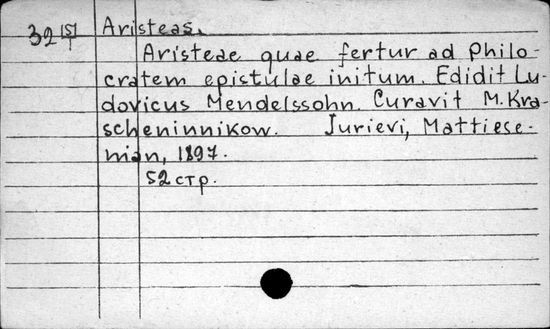 Aristeas.
Aristeae quae fertur ad Philo-
cratem epistulae initum. Edidit Lu-
dovicus Mendelssohn. Curavit M. Kra-
scheninnikow. Jurievi, Mattiese-
nian, 1897.
52 стр.